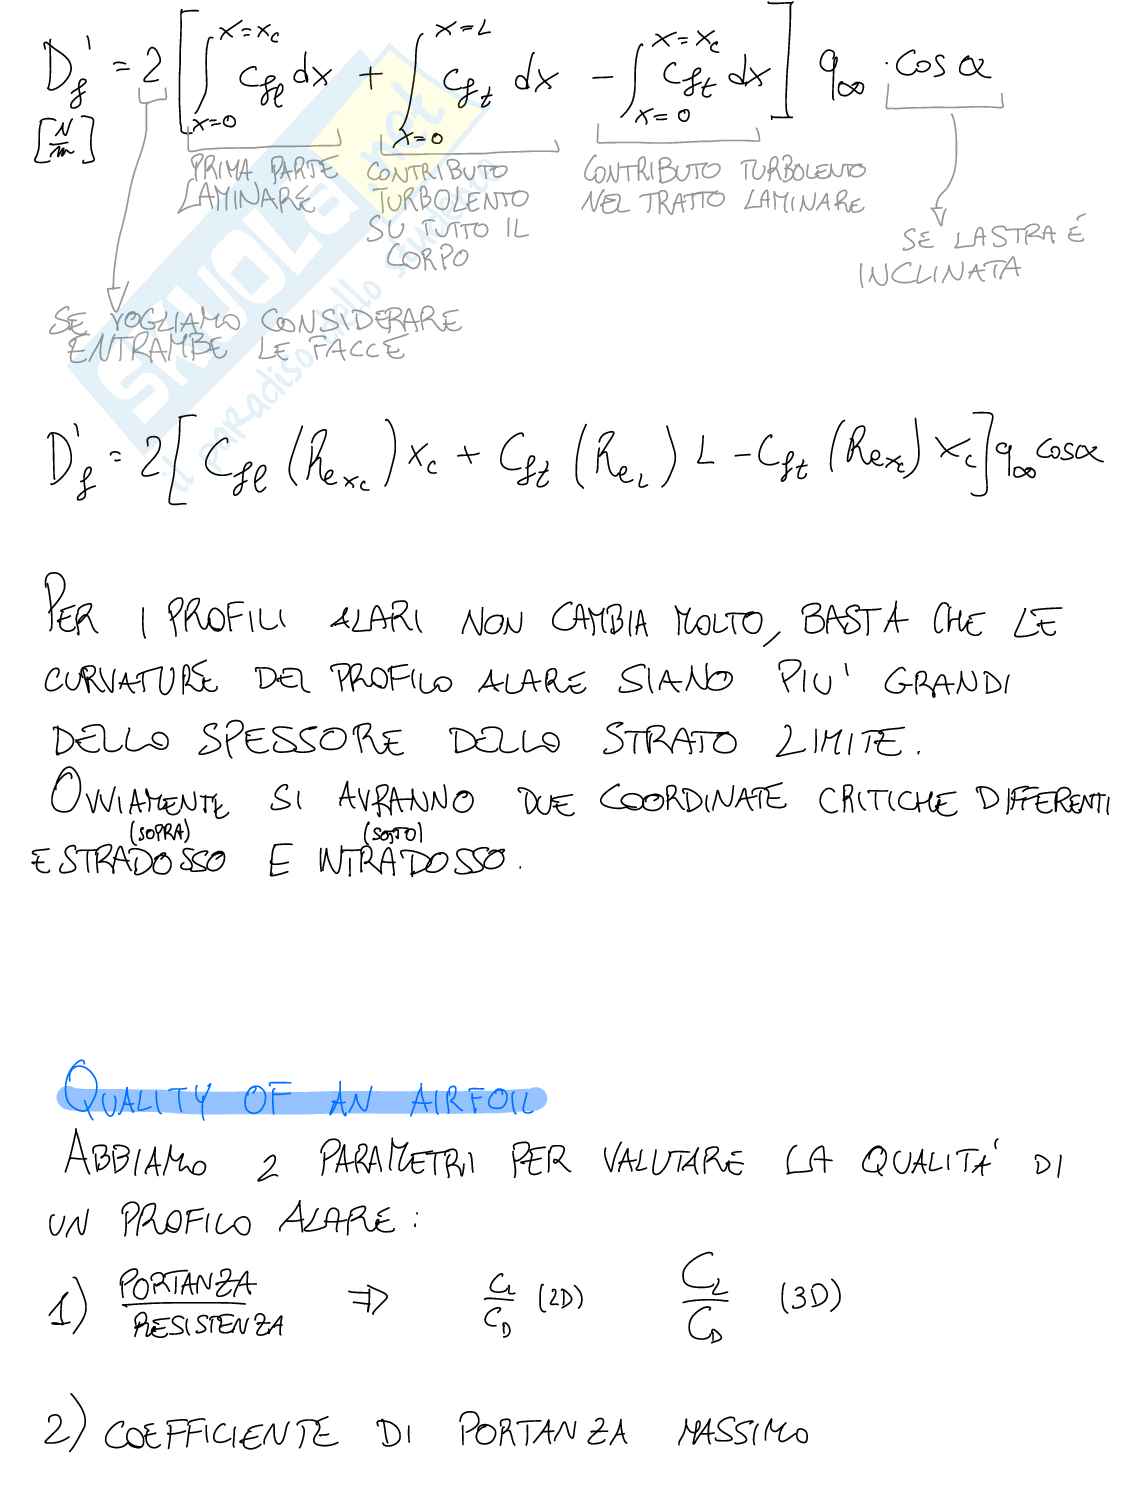 D'f = 2 [ ∫_{x=0}^{x=xc} cfl dx + ∫_{x=0}^{x=L} cft dx - ∫_{x=0}^{x=xc} cft dx ] q∞ · cos α
[N/m]
PRIMA PARTE LAMINARE
CONTRIBUTO TURBOLENTO SU TUTTO IL CORPO
CONTRIBUTO TURBOLENTO NEL TRATTO LAMINARE
SE LASTRA É INCLINATA
SE VOGLIAMO CONSIDERARE
ENTRAMBE LE FACCE
SKUOLA.net
il paradiso dello studente
D'f = 2 [ Cfl (Rexc) xc + Cft (ReL) L - Cft (Rexc) xc ] q∞ cosα
PER I PROFILI ALARI NON CAMBIA MOLTO, BASTA CHE LE
CURVATURE DEL PROFILO ALARE SIANO PIU' GRANDI
DELLO SPESSORE DELLO STRATO LIMITE.
OVVIAMENTE SI AVRANNO DUE COORDINATE CRITICHE DIFFERENTI
(SOPRA) (SOTTO)
ESTRADOSSO E INTRADOSSO.
QUALITY OF AN AIRFOIL
ABBIAMO 2 PARAMETRI PER VALUTARE LA QUALITA' DI
UN PROFILO ALARE:
1) PORTANZA/RESISTENZA ⇒ cl/cD (2D) CL/CD (3D)
2) COEFFICIENTE DI PORTANZA MASSIMO